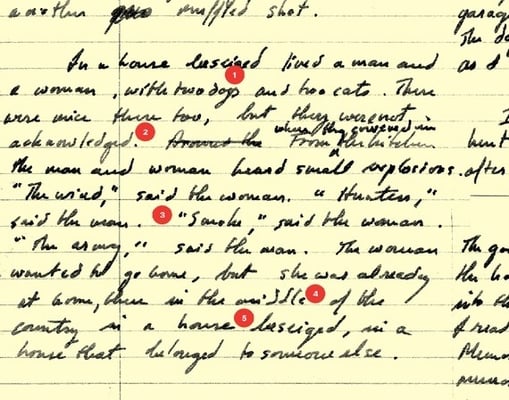 another muffled shot.
In a house beseiged lived a man and
1
a woman, with two dogs and two cats. There
were mice there too, but they were not
where they cowered in
acknowledged. 2 Around the From the kitchen
the man and woman heard small explosions.
"The wind," said the woman. "Hunters,"
said the man. 3 "Smoke," said the woman.
"The army," said the man. The woman
wanted to go home, but she was already
at home, there in the middle 4 of the
country in a house 5 beseiged, in a
house that belonged to someone else.
garag
The do
as d
I
hurt
after
The ga
the ho
into th
I read
Memo